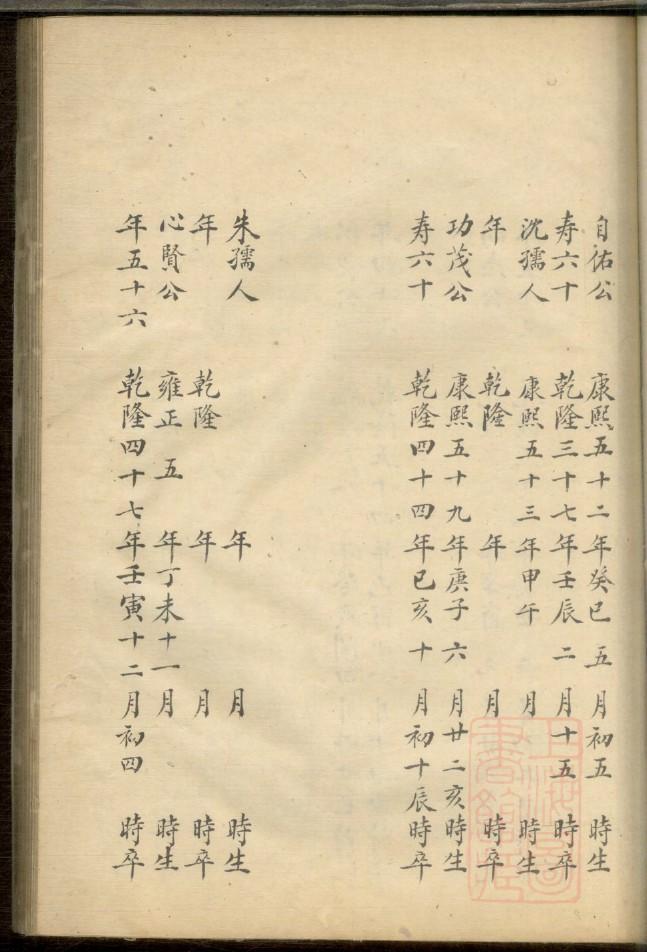 自佑公 康熙五十二年癸巳 五 月初五 時生
寿六十 乾隆三十七年壬辰 二 月十五 時卒
沈孺人 康熙五十三年甲午 月 時生
年 乾隆 年 月 時卒
功茂公 康熙五十九年庚子 六 月廿二亥時生
寿六十 乾隆四十四年己亥 十 月初十辰時卒
朱孺人 年 月 時生
年 乾隆 年 月 時卒
心賢公 雍正 五 年丁未十一月 時生
年五十六 乾隆四十七年壬寅十二月初四 時卒
上海圖書館藏